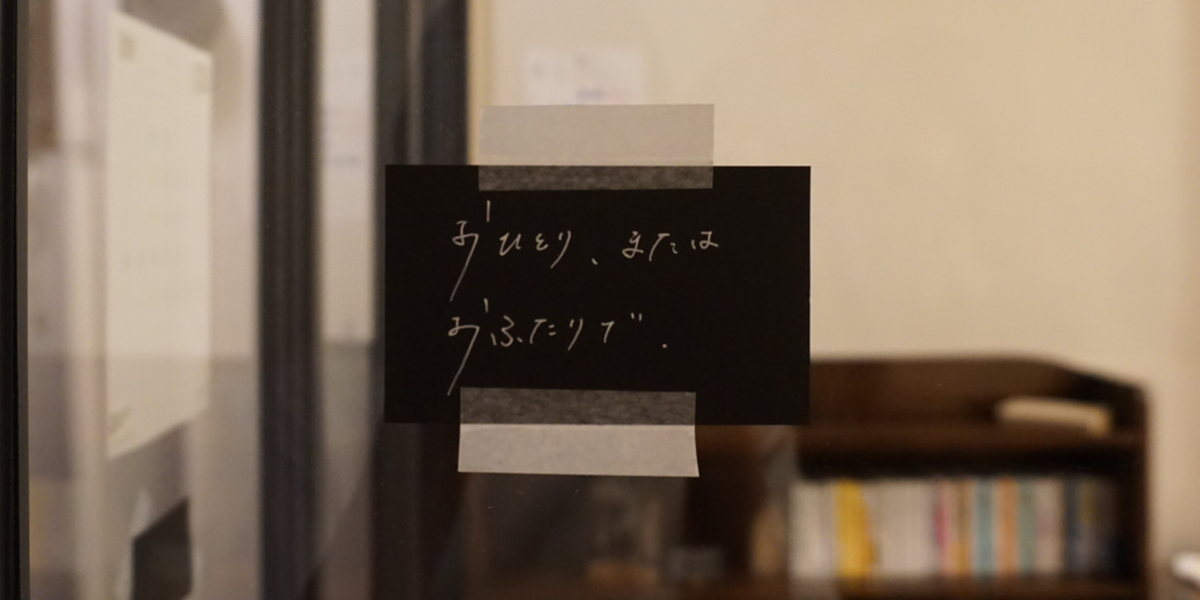 おひとり、または
おふたりで.